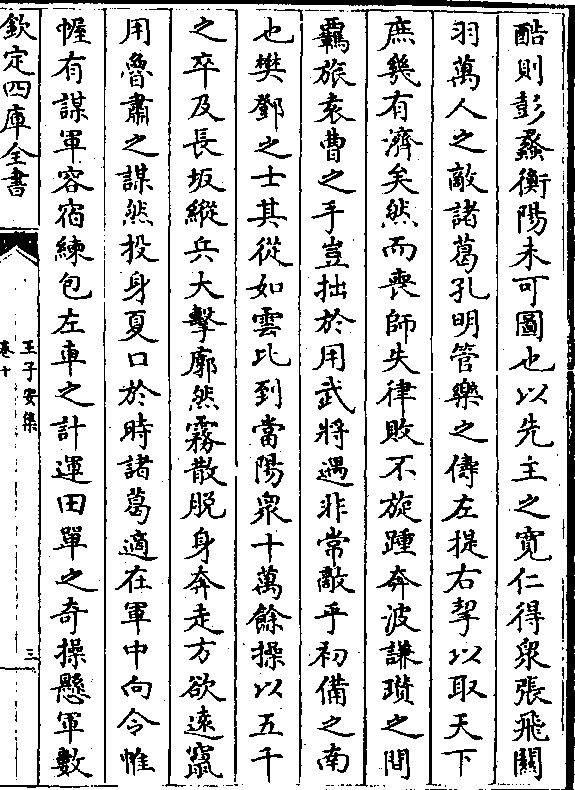 酷則彭蠡衡陽未可圖也以先主之寛仁得衆張飛關
羽萬人之敵諸葛孔明管樂之儔左提右挈以取天下
庶幾有濟矣然而喪師失律敗不旋踵奔波謙瓚之間
羈旅袁曹之手豈拙於用武將遇非常敵乎初備之南
也樊鄧之士其從如雲比到當陽衆十萬餘操以五千
之卒及長坂縱兵大擊廓然霧散脱身奔走方欲逺竄
用魯肅之謀然投身夏口於時諸葛適在軍中向令帷
幄有謀軍容宿練包左車之計運田單之奇操懸軍數
欽定四庫全書
王子安集
卷十
三